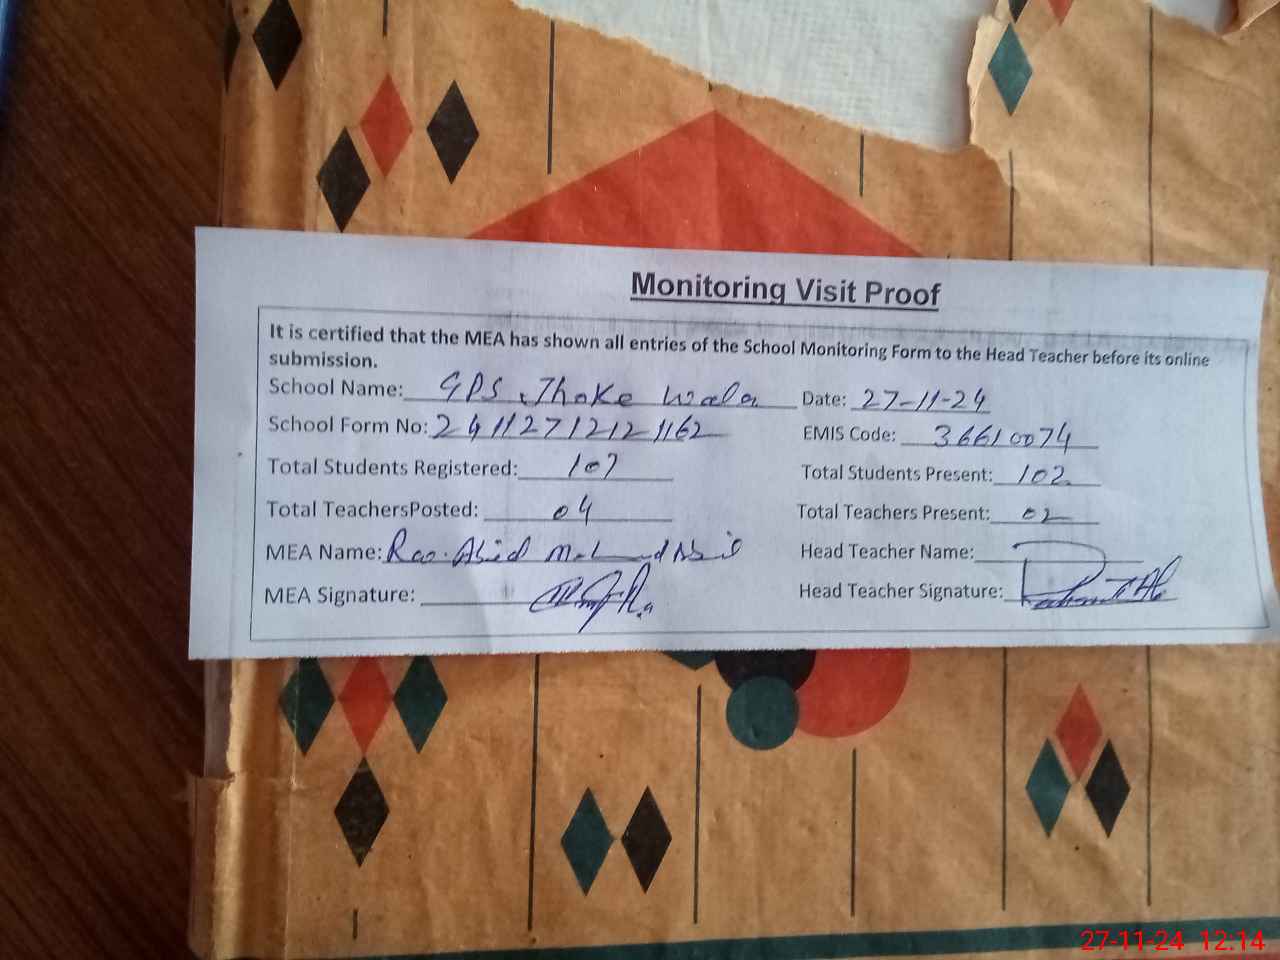 Monitoring Visit Proof
It is certified that the MEA has shown all entries of the School Monitoring Form to the Head Teacher before its online
submission.
School Name: GPS, Thoke wala Date: 27-11-24
School Form No: 2411271212 1162 EMIS Code: 36610074
Total Students Registered: 107 Total Students Present: 102
Total TeachersPosted: 04 Total Teachers Present: 02
MEA Name: Rao. Abid Head Teacher Name:
MEA Signature: Head Teacher Signature:
27-11-24 12:14